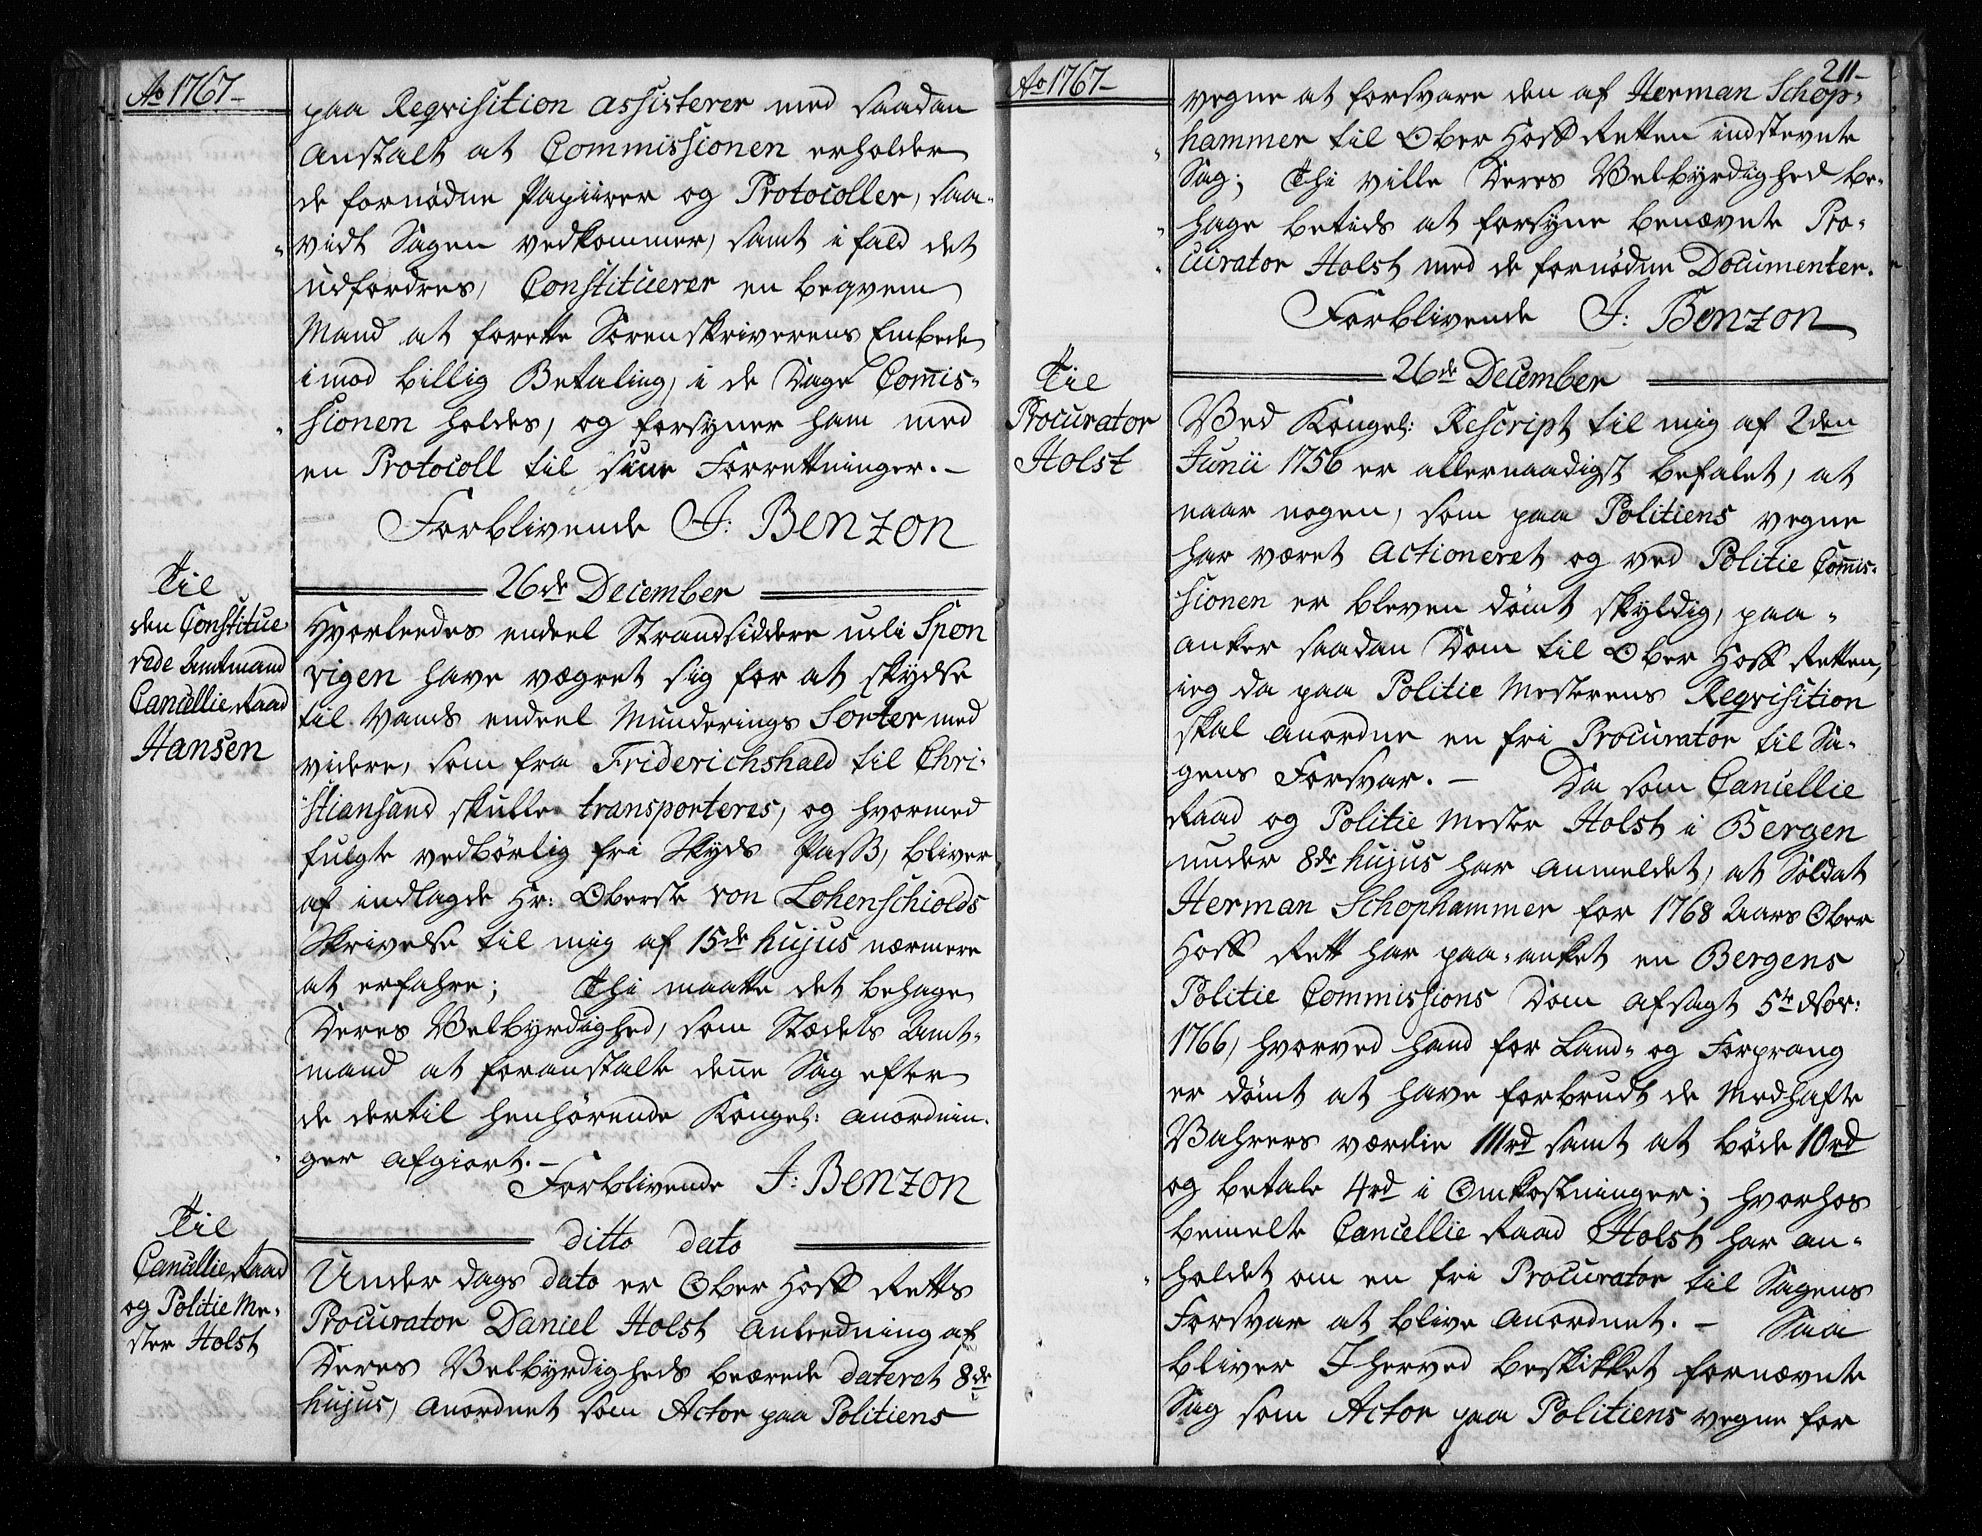 Ao 1767-
paa Reqvisition assisterer med saadan
Anstalt at Commissionen erholder
de fornødne Papiirer og Protocoller, saa-
vidt Sagen vedkommer, samt i fald det
udfordres, Constituerer en beqvem
Mand at forrette Sorenskriverens Embede
imod billig Betaling, i de Dage Com̄is-
sionen holdes, og forsyner ham med
en Protocoll til sine Forrettninger.-
Forblivende J: Benzon
Til
den Constitue-
rede Amtmand
Cancellie Raad
Hansen
26de December
Hvorleedes endeel Strandsiddere udi Spon
vigen have vægret sig for at skydse
til Vands endeel Munderings Sorter med
videre, som fra Friderichshald til Chri-
stiansand skulle transporteres, og hvormed
fulgte vedbørlig fri Skyds Pass, bliver
af indlagde Hr: Oberste von Lohenschiolds
Skrivelse til mig af 15de hujus nærmere
at erfahre; Thi maatte det behage
Deres Velbyrdighed, som Stædets Amt-
mand at foranstalte denne Sag efter
de dertil henhørende Kongel: Anordnin-
ger afgiort.-
Forblivende J: Benzon
Til
Cancellie Raad
og Politie Me-
ster Holst
ditto dato
Under dags dato er Ober Hoff Retts
Procurator Daniel Holst Anledning af
Deres Velbyrdigheds beærede dateret 8de
hujus, anordnet som Actor paa Politiens
Ao 1767-
211-
vegne at forsvare den af Herman Schop-
hammer til Ober Hoff Retten indstevnte
Sag; Thi ville Deres Velbyrdighed be-
hage betids at forsyne benævnte Pro-
curator Holst med de fornødne Documenter.
Forblivende J: Benzon
Til
Procurator
Holst
26de December
Ved Kongel: Rescript til mig af 2den
Junii 1756 er allernaadigst befalet, at
naar nogen, som paa Politiens vegne
har været Actioneret og ved Politie Com̄is-
sionen er bleven dømt skyldig, paa-
anker saadan Dom til Ober Hoff Retten,
ieg da paa Politie Mesterens Reqvisition
skal anordne en fri Procurator til Sa-
gens Forsvar.- Da som Cancellie
Raad og Politie Mester Holst i Bergen
under 8de hujus har anmeldet, at Soldat
Herman Schophammer for 1768 Aars Ober
Hoff Rett har paa-anket en Bergens
Politie Commissions Dom afsagt 5te
1766, hvorved hand for Land- og Forprang
er dømt at have forbrudt de Medhafte
Vahrers værdie 111rd samt at bøde 10rd
og betale 4rd i Omkostninger; hvorhos
bemelte Cancellie Raad Holst har an-
holdet om en fri Procurator til Sagens
Forsvar at blive anordnet.- Saa
bliver I herved beskikket fornævnte
Sag som Actor paa Politiens vegne for